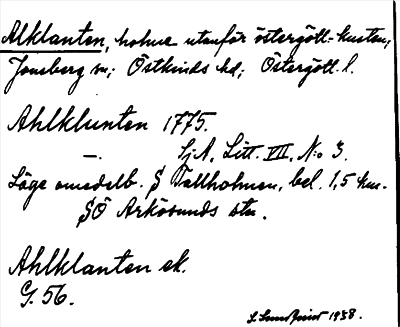 Alklanten, holme utanför östergötl. kusten,
Jonsberg sn; Östkinds hd; Östergötl. l.
Ahlklunten 1775.
—. SjA, Litt. VII, N:o 3.
Läge omedelb. S Tallholmen, bel. 1,5 km.
SÖ Arkösunds stn.
Ahlklanten sk.
G. 56.
1938.